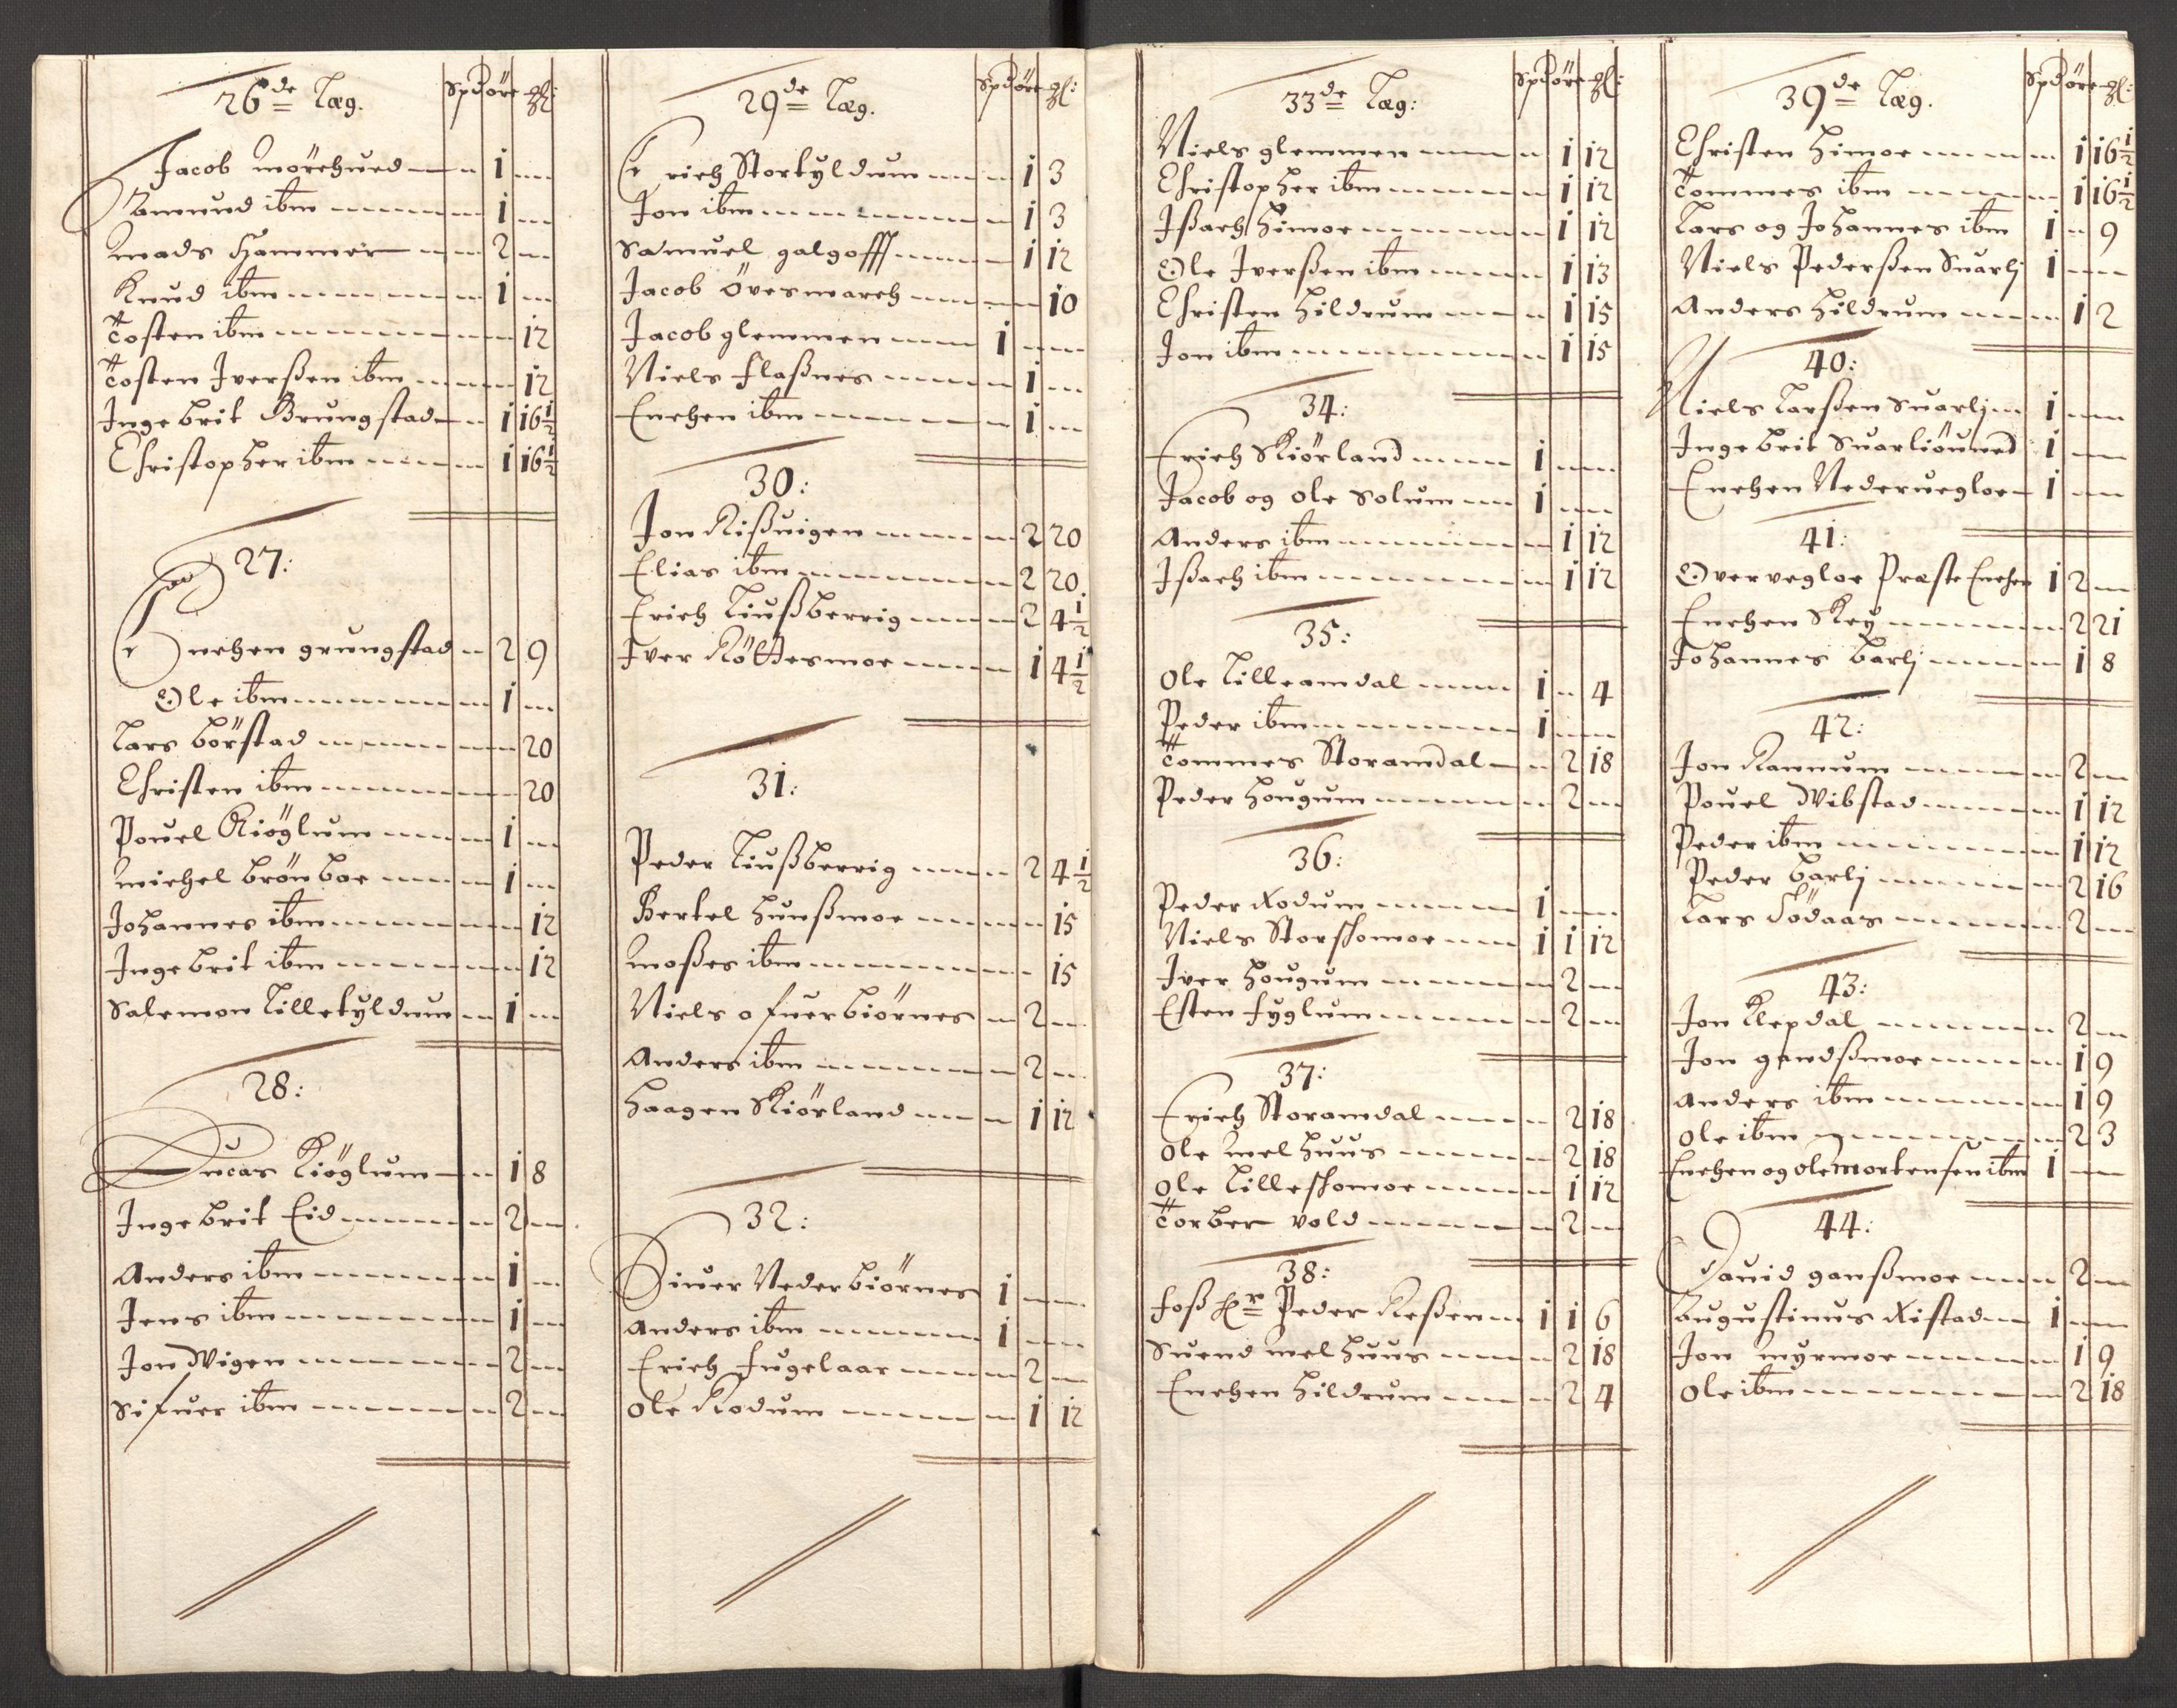 26de Læg.
Spd öre gl:
Jacob Mörchued 1
Amund ibm 1
Mads Hammer 2
Knud ibm 1
Tosten ibm 12
Tosten Iverßen ibm 12
Ingebrit Grungstad 1 16½
Christopher ibm 1 16½
27:
Enchen grungstad 2 9
Ole ibm 1
Lars börstad 20
Christen ibm 20
Povel Kiöglum 1
Michel brönboe 1
Johannes ibm 12
Ingebrit ibm 12
Salemon Lilletyldum 1
28:
Lucas Kiöglum 1 8
Ingebrit Eid 2
Anders ibm 1
Jens ibm 1
Jon Wigen 2
Sifuer ibm 2
29de Læg.
Spd öre gl:
Erich Stortyldum 1 3
Jon ibm 1 3
Samuel galgofff 1 12
Jacob Övesmarch 10
Jacob glemmen 1
Niels flaßnes 1
Enchen ibm 1
30:
Jon Rißuigen 2 20
Elias ibm 2 20
Erich Liußberrig 2 4½
Iver Röttesmoe 1 4½
31:
Peder Liußberrig 2 4½
Bertel hunßmoe 15
Moßes ibm 15
Niels ofuerbiörnes 2
Anders ibm 2
haagen Skiörland 1 12
32:
Siuer Nederbiörnes 1
Anders ibm 1
Erich fugelaar 2
Ole Rodum 1 12
33de Læg:
Spd öre gl:
Niels glemmen 1 12
Christopher ibm 1 12
Ißach himoe 1 12
Ole Iverßen ibm 1 13
Christen hildrum 1 15
Jon ibm 1 15
34:
Erich Skiörland 1
Jacob og Ole Solum 1
Anders ibm 1 12
Ißach ibm 1 12
35:
Ole Lilleamdal 1 4
Peder ibm 1
Tommes Storamdal 2 18
Peder hougum 2
36:
Peder Rodum 1
Niels Storskomoe 1 1 12
Iver hougum 2
Esten fyglum 2
37:
Erich Storamdal 2 18
Ole Melhuus 2 18
Ole Lilleskomoe 1 12
Torber vold 2
38:
foß hr Peder Reßen 1 1 6
Suend Melhuus 2 18
Enchen hildrum 2 4
39de Læg.
Spd öre gl:
Christen himoe 1 16½
Tommes ibm 1 16½
Lars og Johannes ibm 1 9
Niels Pederßen Suarlj 1
Anders hildrum 1 2
40:
Niels Larßen Suarlj 1
Ingebrit Suarliöuned 1
Enchen Nederuegloe 1
41:
Overvegloe Præste Enchen 1 2
Enchen Skey 2 21
Johannes barlj 1 8
42:
Jon Rannum 2
Povel Wibstad 1 12
Peder ibm 1 12
Peder barlj 2 16
Lars Födaas 2
43:
Jon Klepdal 2
Jon gandßmoe 1 9
Anders ibm 1 9
Ole ibm 2 3
Enchen og Ole Mortensen ibm 1
44:
David ganßmoe 2
Augustinus Ristad 1
Jon Myrmoe 1 9
Ole ibm 2 18